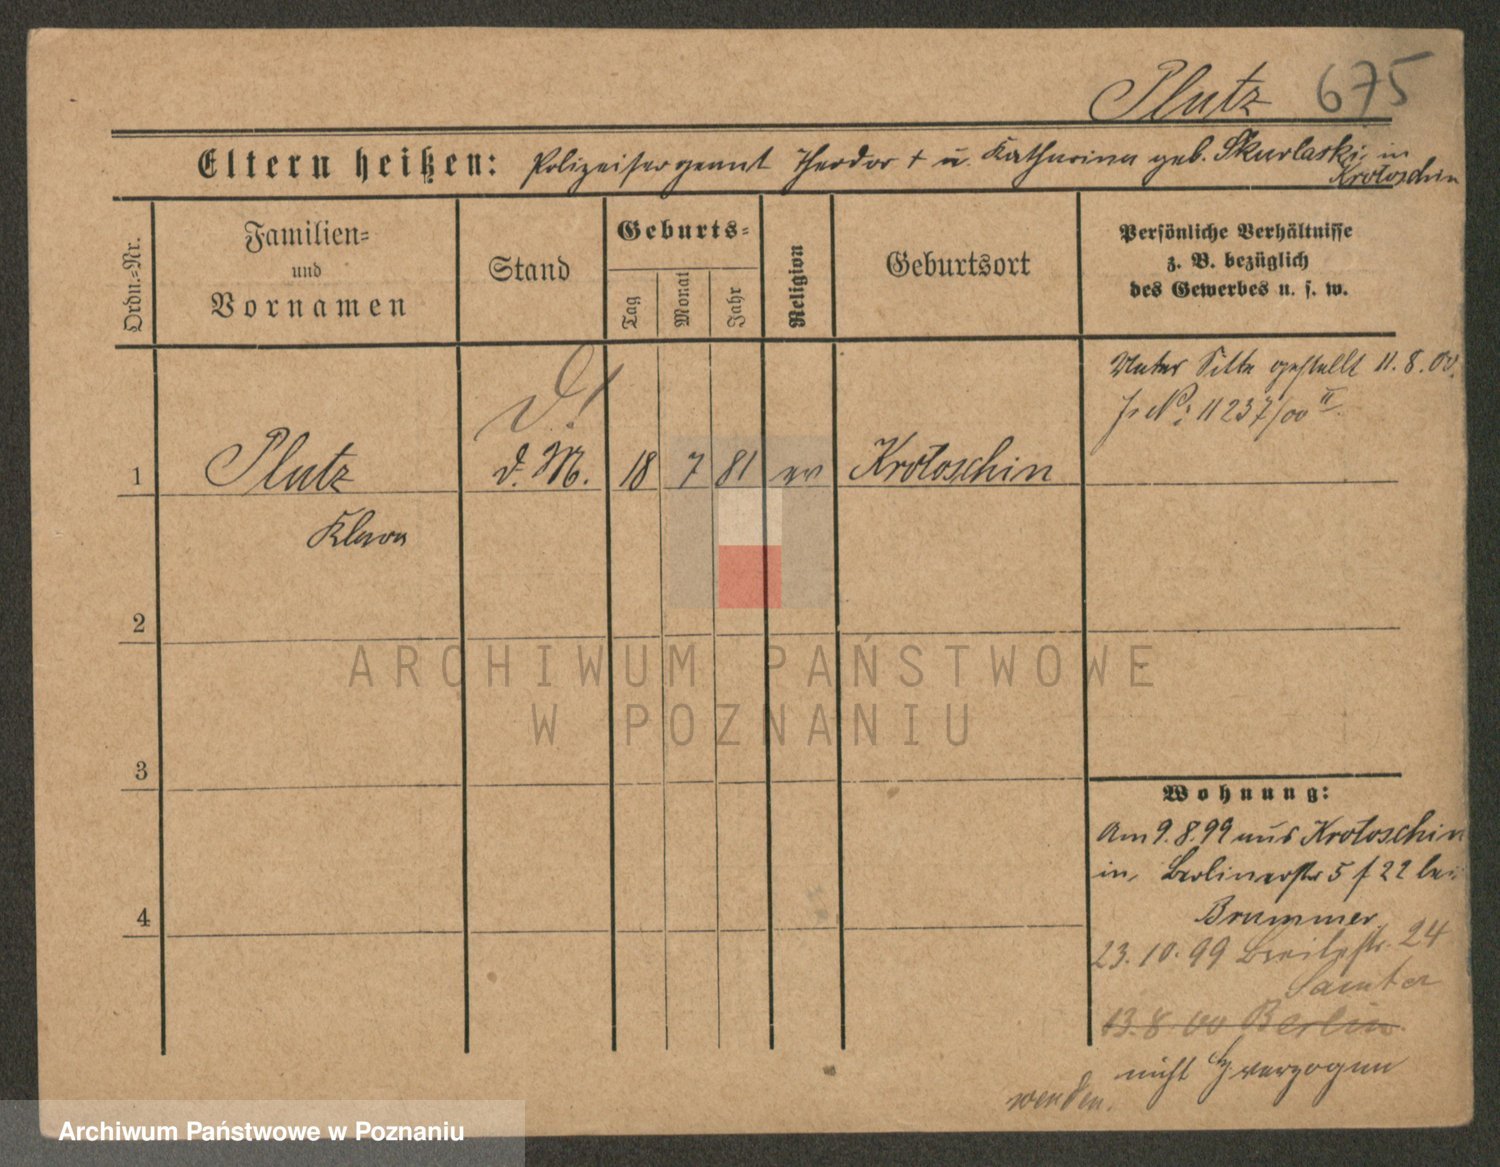 Plutz 675
Eltern heißen: Polizeisergeant Theodor † u. Katharina geb. Skurlaski in
Krotoschin
Ordn.-Nr.
Familien-
und
Vornamen
Stand
Geburts-
Tag
Monat
Jahr
Religion
Geburtsort
Persönliche Verhältnisse
z. B. bezüglich
des Gewerbes u. s. w.
Unter Sitte gestellt 11. 8. 00.
J. No: 11237/00 II
1 Plutz d. M. 18 7 81 ev Krotoschin
Klara
2
3
4
Wohnung:
Am 9. 8. 99 aus Krotoschin
in, Berlinerstr 5 f 22 bei
Brummer
23. 10. 99 Breitestr. 24
Samter
13. 8. 00 Berlin
nicht verzogen
wenden.
ARCHIWUM PAŃSTWOWE
W POZNANIU
Archiwum Państwowe w Poznaniu